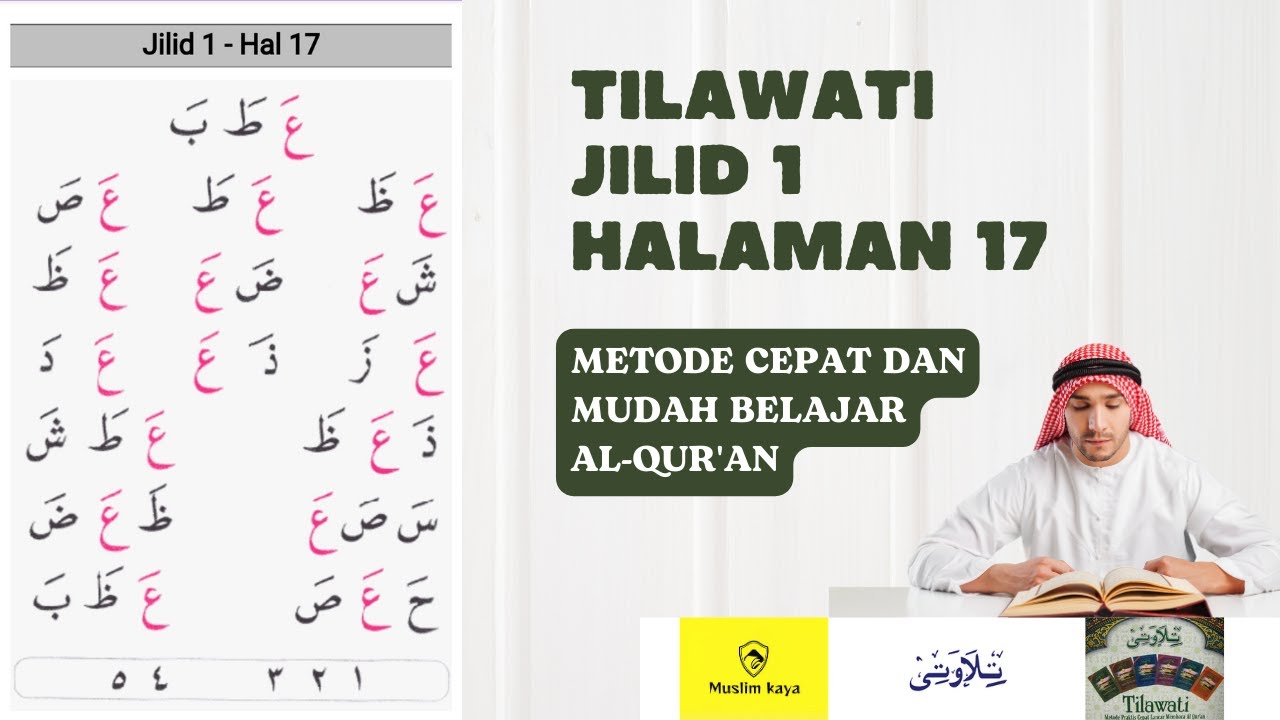 Jilid 1 - Hal 17
عَ طَ بَ
عَ ظَ عَ طَ عَ صَ
شَ عَ ضَ عَ عَ ظَ
عَ زَ ذَ عَ عَ دَ
ذَ عَ ظَ عَ طَ شَ
سَ صَ عَ ظَ عَ ضَ
حَ عَ صَ عَ ظَ بَ
١ ٢ ٣ ٤ ٥
TILAWATI
JILID 1
HALAMAN 17
METODE CEPAT DAN
MUDAH BELAJAR
AL-QUR'AN
Muslim kaya
تِلَاوَتِىْ
تِلَاوَتِىْ
Tilawati
Metode Praktis Cepat Lancar Membaca Al Qur'an